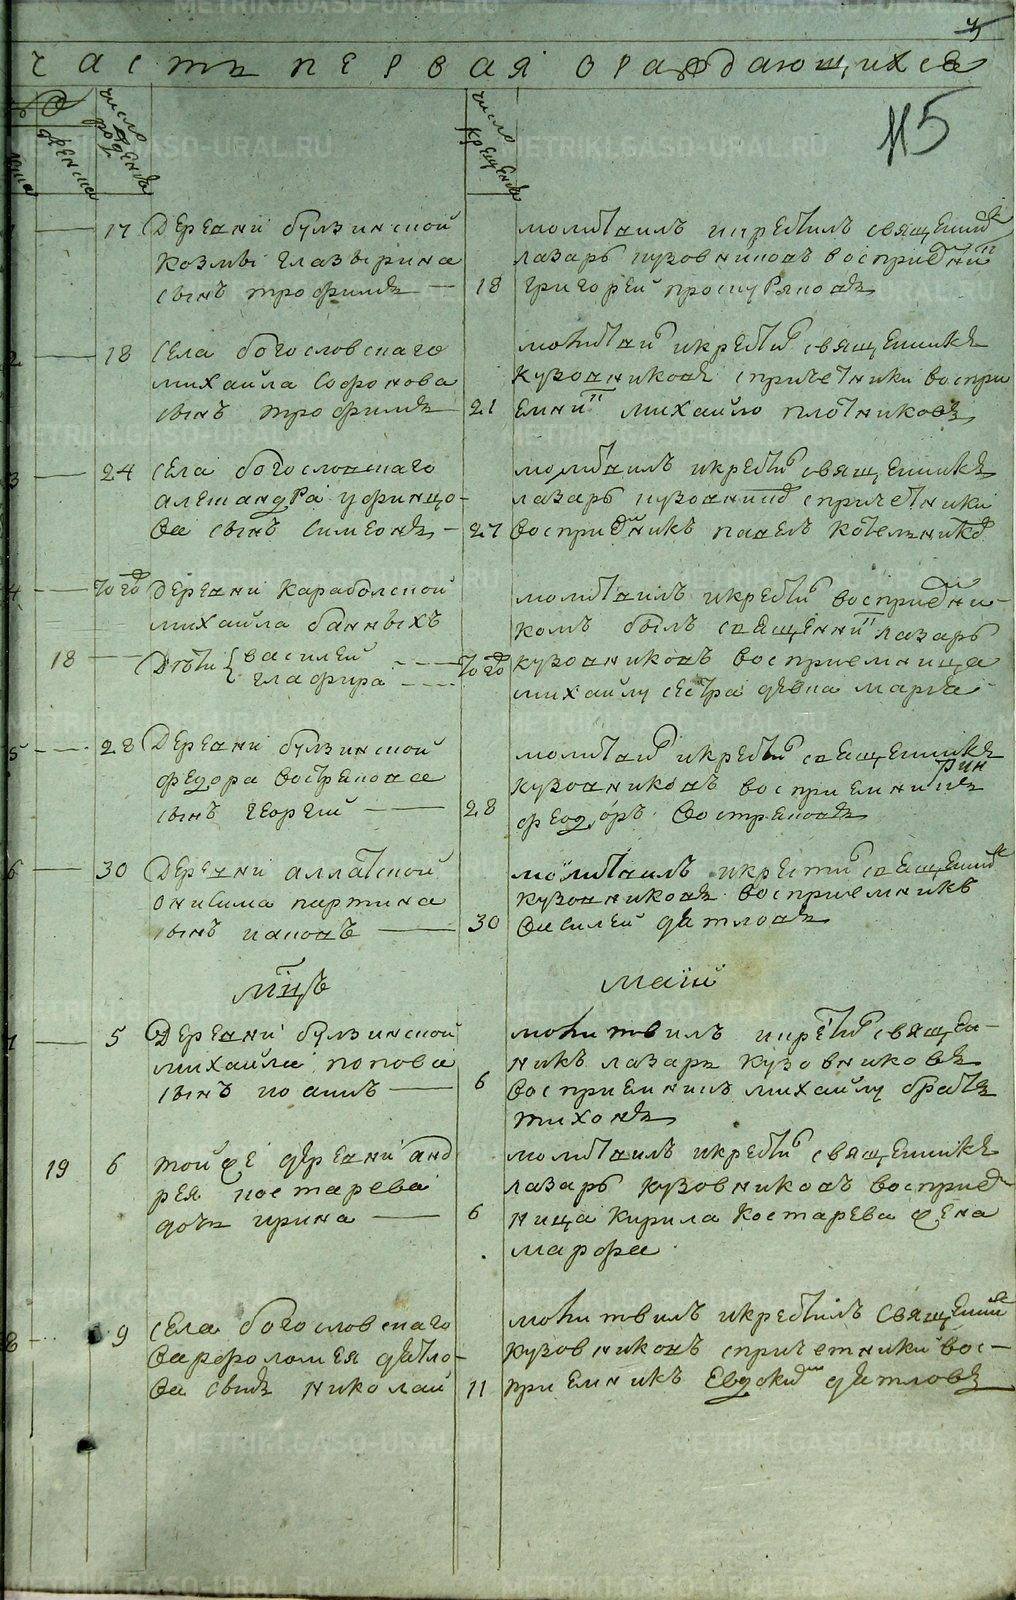 часть первая о раждающихся
115
число рожденiя
число крещенiя
женска
1 17 Деревни булзинской
козмы глазырина
сынъ трофимъ
молитвилъ икрестилъ священникъ
лазарь кузовниковъ восприемникъ
18 григорей проскуряковъ
2 18 села богословскаго
михайла софонова
сынъ трофимъ
молитвилъ икрестилъ священникъ
кузовниковъ спричетники воспри
21 емникъ михайло плотниковъ
3 24 села богословскаго
александра уфинцо-
ва сынъ симеонъ
молитвилъ икрестилъ священникъ
лазарь кузовниковъ спричетники
27 восприемникъ павелъ котельниковъ
4 того Деревни караболской
михайла банныхъ
18 Дѣти василей
глафира
молитвилъ икрестилъ восприемни-
комъ былъ священникъ лазарь
того кузовниковъ восприемница
михайлу сестра девка марѳа
5 28 Деревни булзинской
федора вострякова
сынъ георгий
молитвилъ икрестилъ священникъ
кузовниковъ восприемникъ
28 федоръ востряковъ
6 30 Деревни аллатской
онисима партина
сынъ иаковъ
молитвилъ икрестилъ священникъ
кузовниковъ восприемникъ
30 василей дятловъ
мцъ маiй
7 5 Деревни булзинской
михайла попова
сынъ иоаннъ
молитвилъ икрестилъ священ-
никъ лазарь кузовниковъ
6 восприемникъ михайлу братъ
тихонъ
19 6 тойже деревни анд
рея костарева
дочь ирина
молитвилъ икрестилъ священникъ
лазарь кузовниковъ восприем
6 ница кирила костарева жена
марфа
8 9 села богословскаго
варфоломея дятло-
ва сынъ николай
молитвилъ икрестилъ священникъ
кузовниковъ спричетники вос-
11 приемникъ Евдокимъ дятловъ
METRIKI.GASO-URAL.RU